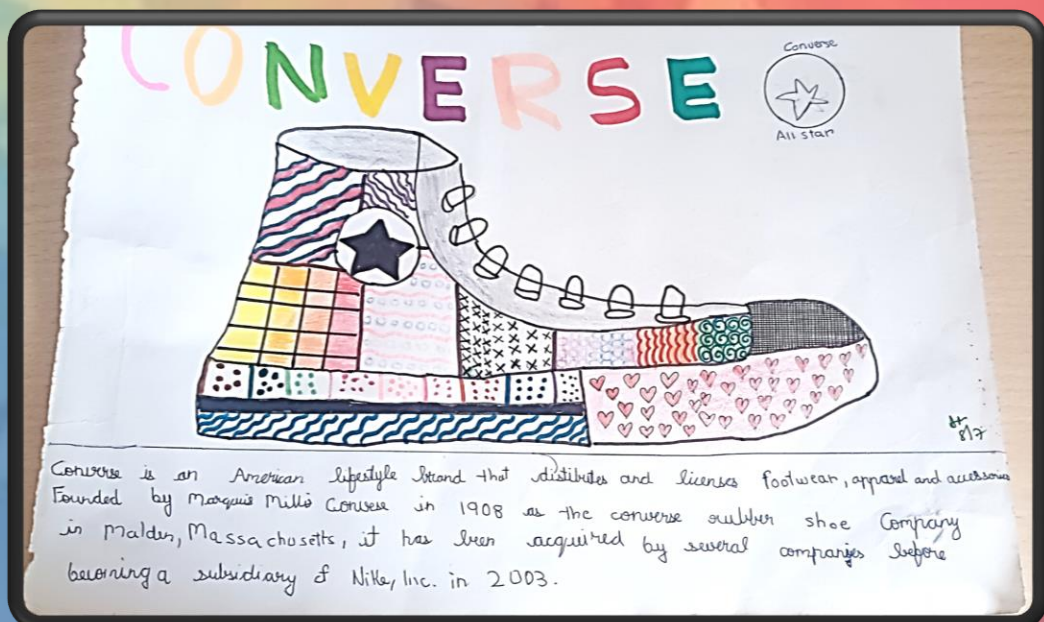 CONVERSE
Converse
All star
8/7
Converse is an American lifestyle brand that distibutes and licenses footwear, apparel and accessories
Founded by Marquis Mills Convese in 1908 as the converse rubber shoe Company
in Malden, Massachusetts, it has been acquired by several companies before
becoming a subsidiary of Nike, Inc. in 2003.